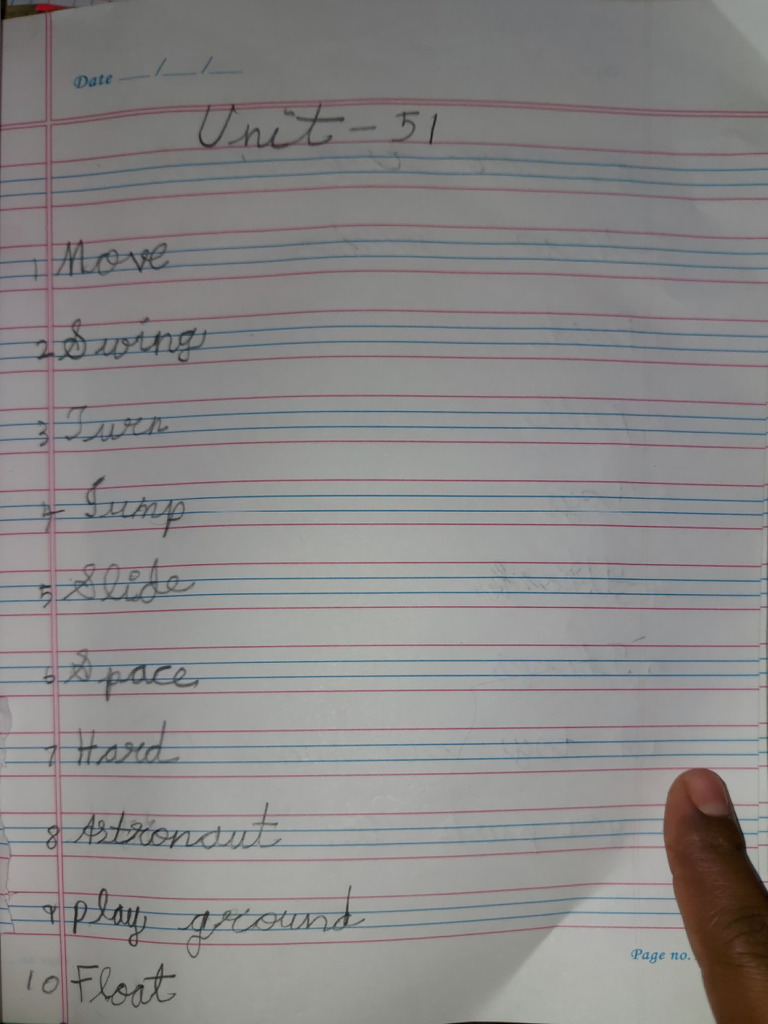 Date __/__/__
Unit - 51
1 Move
2 Swing
3 Turn
4 Jump
5 Slide
6 Space
7 Hard
8 Astronaut
9 Play ground
10 Float
Page no.